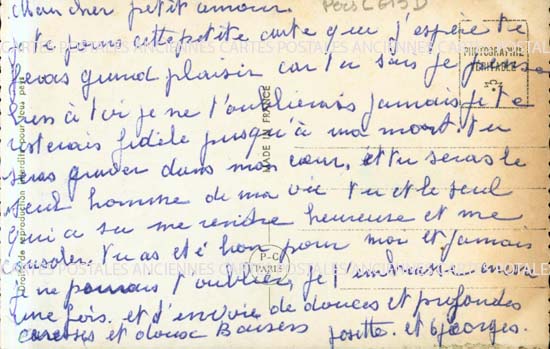 Mon cher petit amour.
Je te pourse cette petite carte qui j'espère te
feras grand plaisir car tu sais je pense
bien à toi je ne t'oublierais jamais je te
resterais fidèle jusqu'à ma mort. tu
seras graver dans mon cœur, et tu seras le
seul homme de ma vie tu et le seul
qui a su me rendre heureuse et me
consoler. tu as été bon pour moi et jamais
je ne pourrais t'oublier, je t'embrasse encore
une fois. et t'envoie de douces et profondes
caresses et doux Baisers Josette. et Georges.
PHOTOGRAPHIE
VÉRITABLE
MADE IN FRANCE
P-C
PARIS
Droits de reproduction interdits pour tous pays
CARTES POSTALES ANCIENNES CARTES POSTALES ANCIENNES CARTES POSTALES